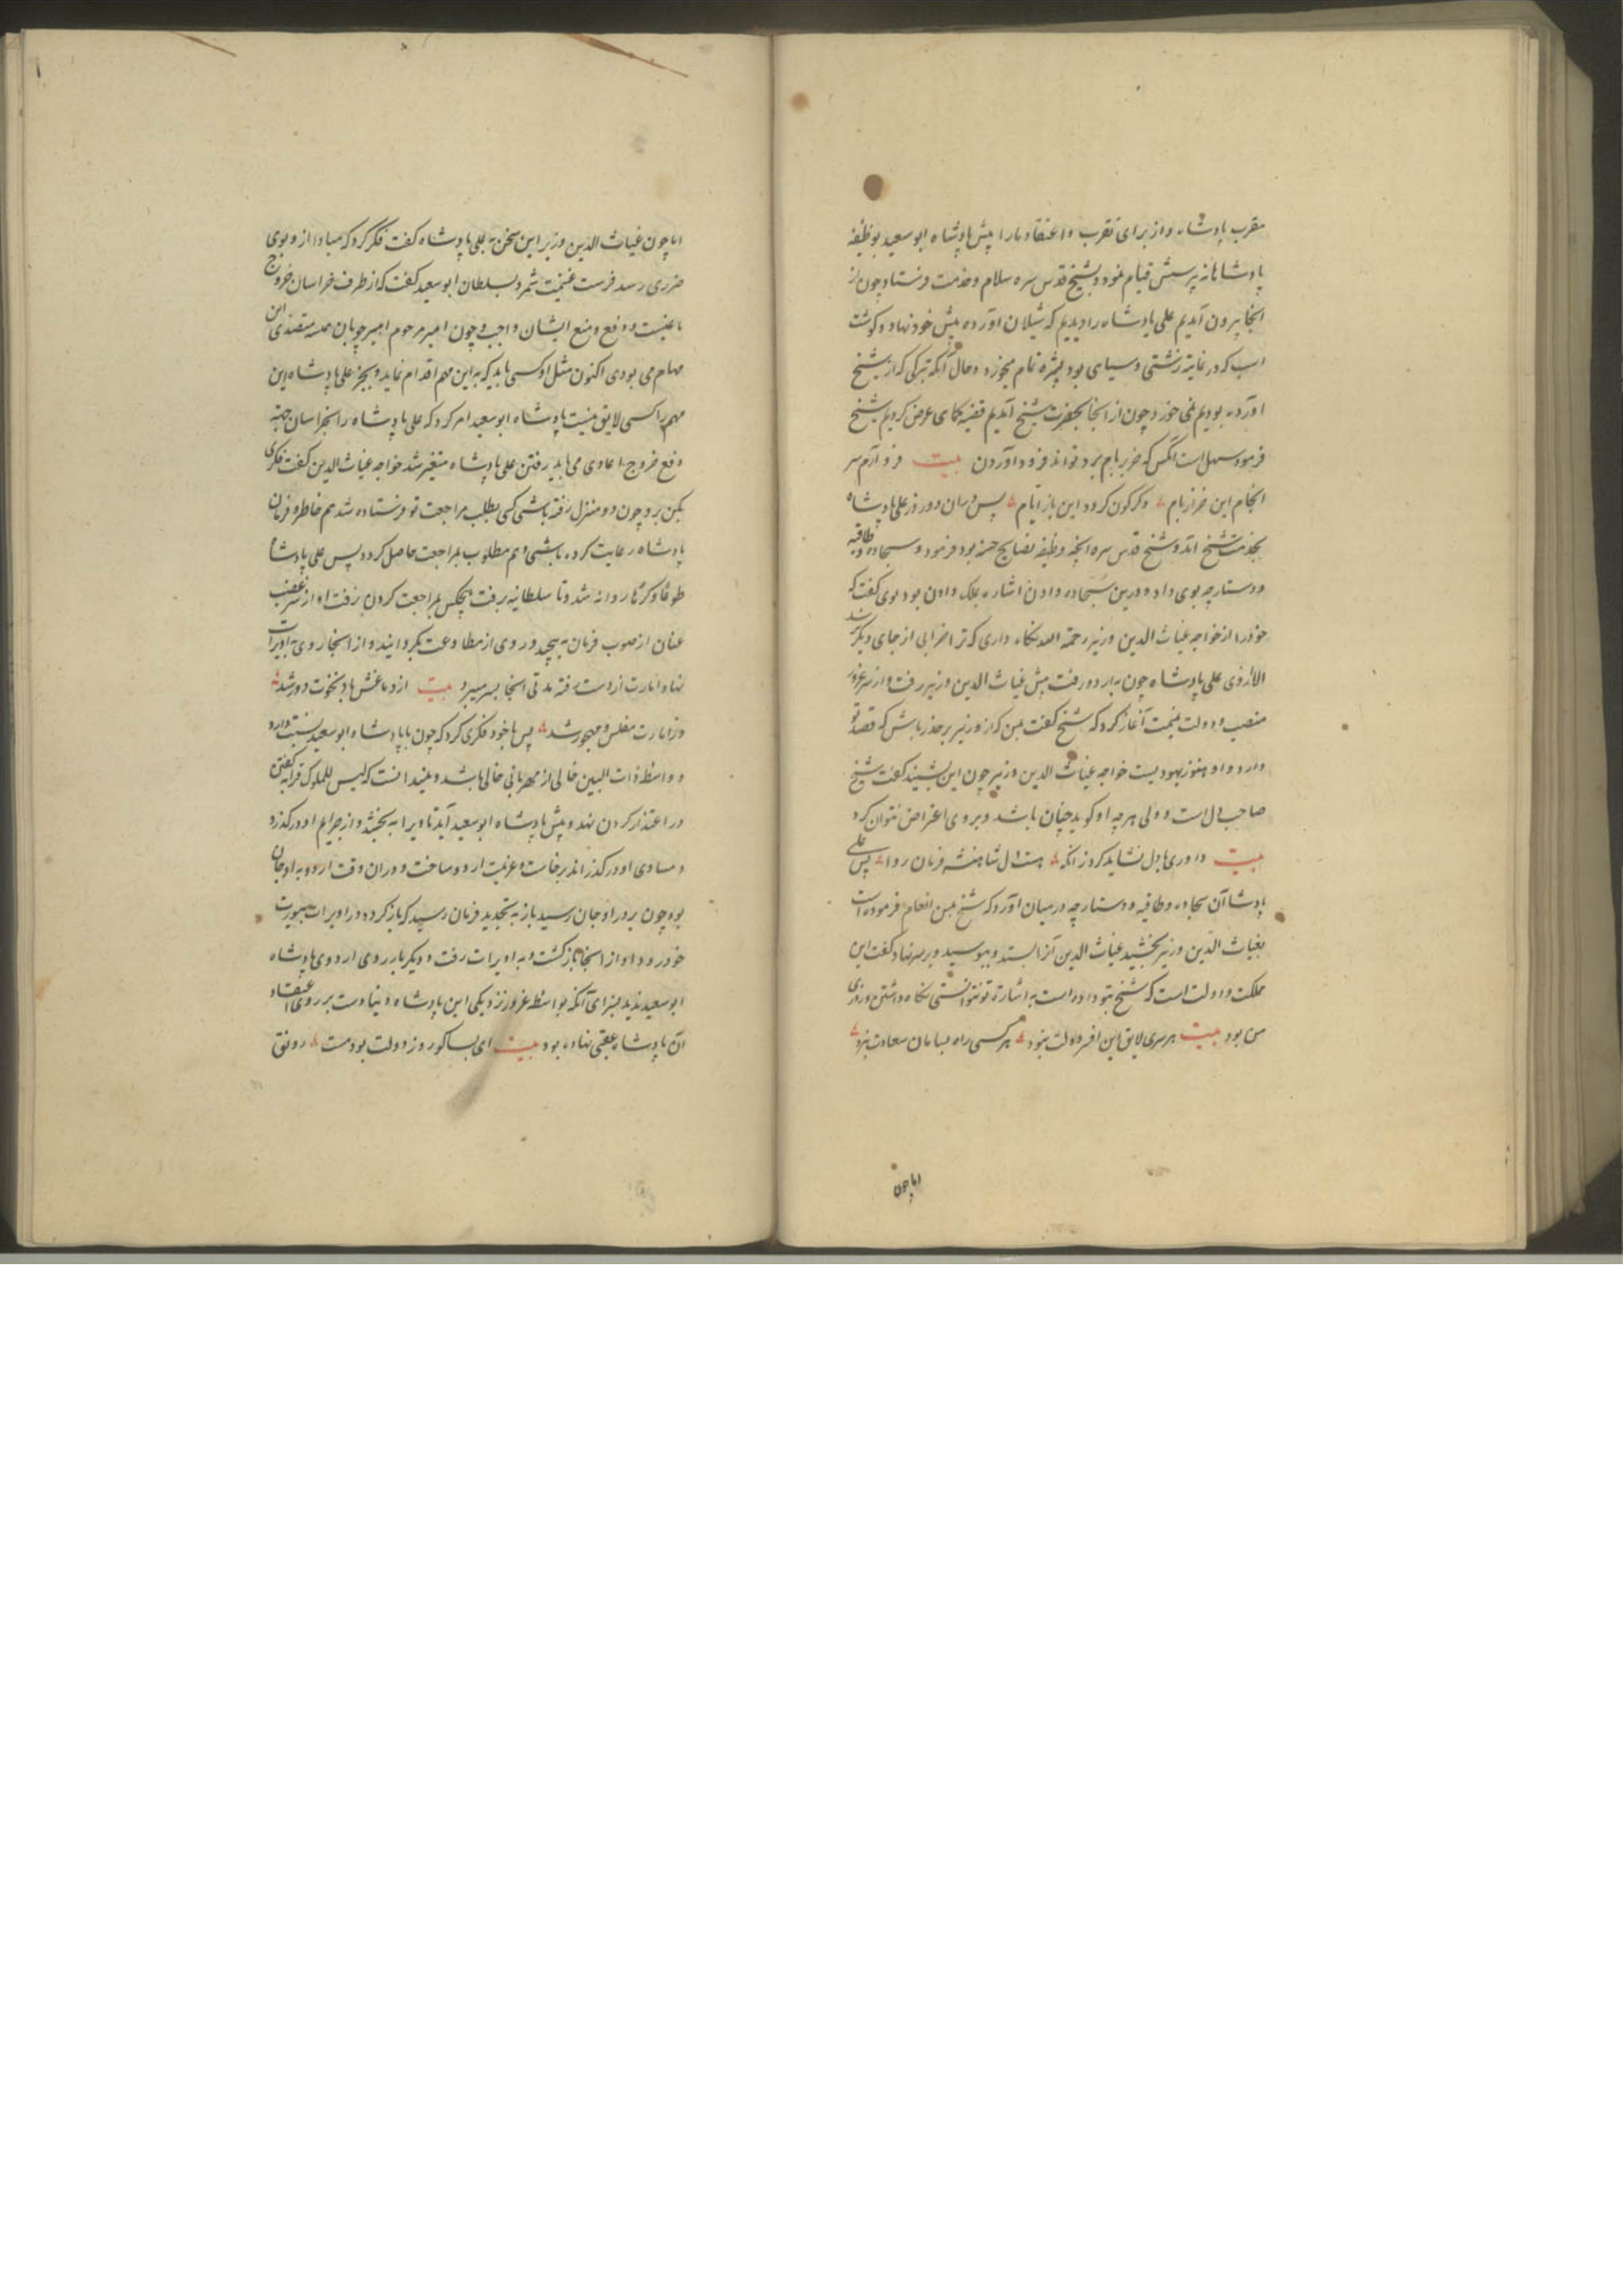 مقرب پادشاه و از برای تقرب و اعتقاد ما را پیش پادشاه ابو سعید بوظیفه
پادشاهانه پرسش قیام نمود و بشیخ قدس سره سلام و خدمت فرستاد چون از
انجا بیرون آمدیم علی پادشاه را دیدیم که شیلان آورده پیش خود نهاد و گوشت
اسب که در غایة زشتی و سیاهی بود بشره تمام میخورد و حال آنکه تبرکی که از شیخ
اورده بودیم نمی خورد چون از انجا بحضرت شیخ آمدیم قضیه کماهی عرض کردیم شیخ
فرمود سهل است انکس که خر ببام برد تواند فرود آوردن بیت فرو آرم سر
انجام این خر از بام دگرگون گردد این باز ایام پس در ان دو روز علی پادشاه
بخدمت شیخ امد و شیخ قدس سره انچه وظیفه نصایح حسنه بود فرمود و سجاده و طاقیه
و دستارچه بوی داد و درین سجاده دادن اشاره بملک دادن بود بوی گفت که
خود را از خواجه غیاث الدین وزیر رحمة الله نگاه داری که ترا خرابی از جای دیگر نرسد
الا ازوی علی پادشاه چون باردو رفت پیش غیاث الدین وزیر رفت و از سر غرور
منصب و دولت نمیمت آغاز کرد که شیخ گفت بمن که از وزیر بر حذر باش که قصد تو
دارد و او هنوز یهودیست خواجه غیاث الدین وزیر چون این بشنید گفت شیخ
صاحب دل است و ولی هرچه او گوید چنان باشد و بروی اعتراض نتوان کرد
بیت داوری با دل نشاید کرد زانکه هست دل شاهنشه فرمان روا پس علی
پادشا آن سجاده و طاقیه و دستارچه در میان آورد که شیخ بمن انعام فرموده است
بغیاث الدین وزیر بخشید غیاث الدین آنرا بستد و ببوسید و بر سر نهاد گفت این
مملکت و دولت است که شیخ بتو داده است به اشارة تو نتوانستی نگاه داشتن و روزی
من بود بیت هر سری لایق این افسر دولت نبود هر کسی راه بسامان سعادت نبرد
اما چون
اما چون غیاث الدین وزیر این سخن به علی پادشاه گفت فکر کرد که مبادا از و بوی
ضرری رسد فرصت غنیمت شمرد بسلطان ابو سعید گفت که از طرف خراسان خروج
یاغیست و دفع و منع ایشان واجب و چون امیر مرحوم امیر چوپان همه متصدی این
مهام می بودی اکنون مثل او کسی باید که به این مهم اقدام نماید و بجز علی پادشاه این
مهم را کسی لایق نیست پادشاه ابو سعید امر کرد که علی پادشاه را بخراسان جهة
دفع خروج اعادی می باید رفتن علی پادشاه متغیر شد خواجه غیاث الدین گفت فکری
مکن برو چون دو منزل رفته باشی کسی بطلب مراجعت تو فرستاده شد هم خاطر و فرمان
پادشاه رعایت کرده باشی و هم مطلوب بمراجعت حاصل گردد پس علی پادشاه
طوعا و کرها روانه شد و تا سلطانیه رفت هیچکس بمراجعت کردن نرفت او از سر غضب
عنان از صوب فرمان به پیچید و روی از مطاوعت بگردانید و از انجا روی به اویرات
نهاد امارت از دست رفته مدتی انجا بسر میبرد بیت از دماغش باد نخوت دور شد
وز امارت مفلس و مهجور شد پس با خود فکری کرد که چون با پادشاه ابو سعید نسبت دارد
و واسطه ذات البین خالی از مهربانی خالی باشد و نمیدانست که لیس للملوک قرابة گفتی
در اعتذار کردن نهد و پیش پادشاه ابو سعید آید تا ویرا به بخشد و از جرایم او درگذرد
و مساوی او درگذراند برخاست و عزیمت اردو ساخت و در ان وقت اردو به اوجان
بود چون بدر اوجان رسید باز به تجدید فرمان رسید که باز گردد و در اویرات بیورت
خود رود او از انجا بازگشت و به اویرات رفت و دیگر بار روی اردوی پادشاه
ابو سعید ندید بنرای آنکه بواسطه غرور نزدیکی این پادشاه دنیا دست بر روی اعتقاد
آن پادشاه عقبی نهاده بود بیت ای بسا کور روز دولت بود مست رونق